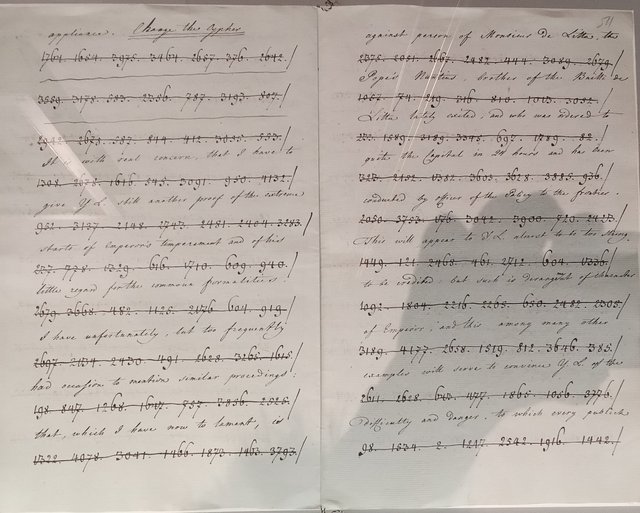 appliance. Change the Cypher
1764. 1654. 3975. 3464. 2657. 376. 2642.
3559. 3178. 583. 2356. 787. 3193. 507.
2942. 2623. 587. 844. 412. 3035. 553.
It is with real concern, that I have to
1308. 2028. 1616. 545. 3091. 950. 4132.
give Y L. still another proof of the extreme
952. 3137. 2148. 2747. 2481. 2404. 3283.
starts of Emperor's temperament and of his
237. 728. 1329. 616. 1710. 609. 940.
little regard for the common formalities.
2679. 3668. 482. 1125. 2176. 604. 919.
I have unfortunately, but too frequently
2697. 2134. 2430. 491. 2628. 3265. 1615.
had occasion to mention similar procedings:
198. 847. 1268. 1647. 757. 3856. 2025.
that, which I have now to lament, is
1322. 4078. 3041. 1466. 1873. 1463. 3793.
511
against person of Monsieur de Litta, the
2375. 2051. 2167. 2482. 444. 3089. 2679.
Pope's Nuntius, brother of the Bailli de
1057. 74. 219. 316. 810. 1013. 3052.
Litta lately exiled; and who was ordered to
1589. 3189. 3345. 697. 1789. 82.
quit the Capital in 24 hours and has been
327. 2152. 1382. 3603. 3628. 3885. 936.
conducted by officer of the Police to the frontier.
2050. 3753. 176. 3042. 3900. 720. 2427.
This will appear to Y L almost to be too strong
1449. 121. 2468. 461. 2712. 604. 1336.
to be credited: but such is derangemt of character
1092. 1804. 2216. 2265. 650. 2482. 2305.
of Emperor; and this among many other
3189. 4177. 2658. 1519. 812. 3646. 385.
examples will serve to convence Y L of the
2611. 2628. 643. 477. 1865. 1056. 3776.
difficulty and danger, to which every publick
98. 1534. 2. 1217. 2542. 1916. 1442.